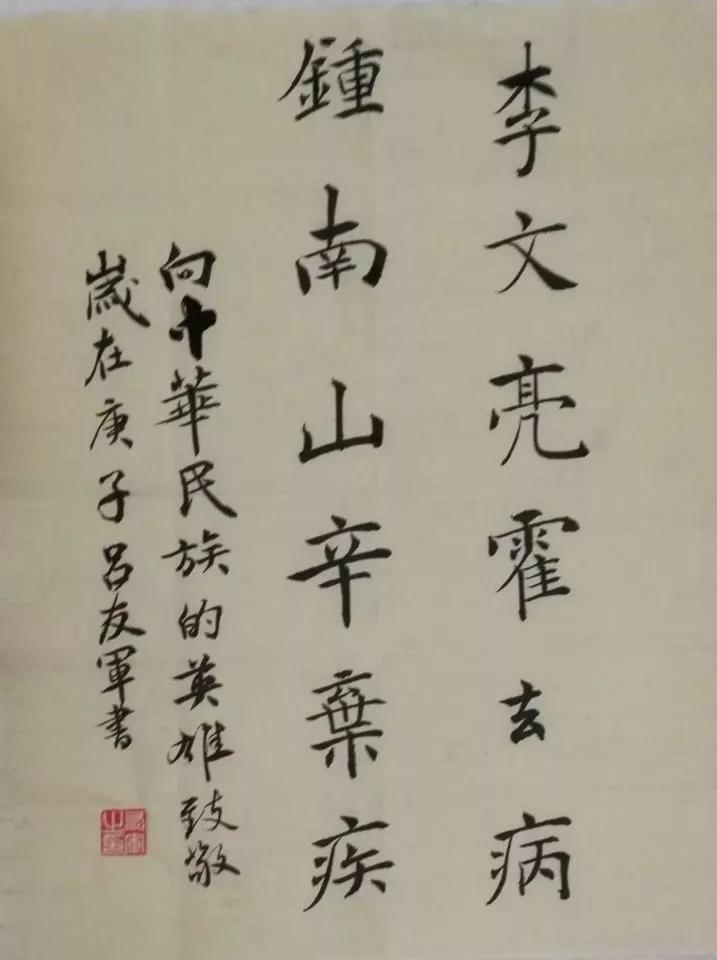 李文亮霍去病
鍾南山辛棄疾
向中華民族的英雄致敬
歲在庚子吕友軍書